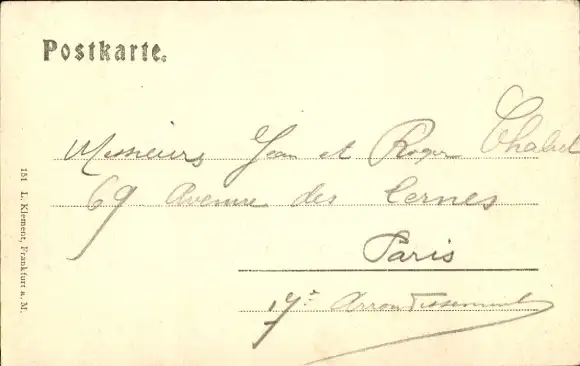 Postkarte.
Messieurs Jean et Roger Chabert
69 Avenue des Cernes
Paris
17e Arrondissement
151 L. Klement, Frankfurt a. M.